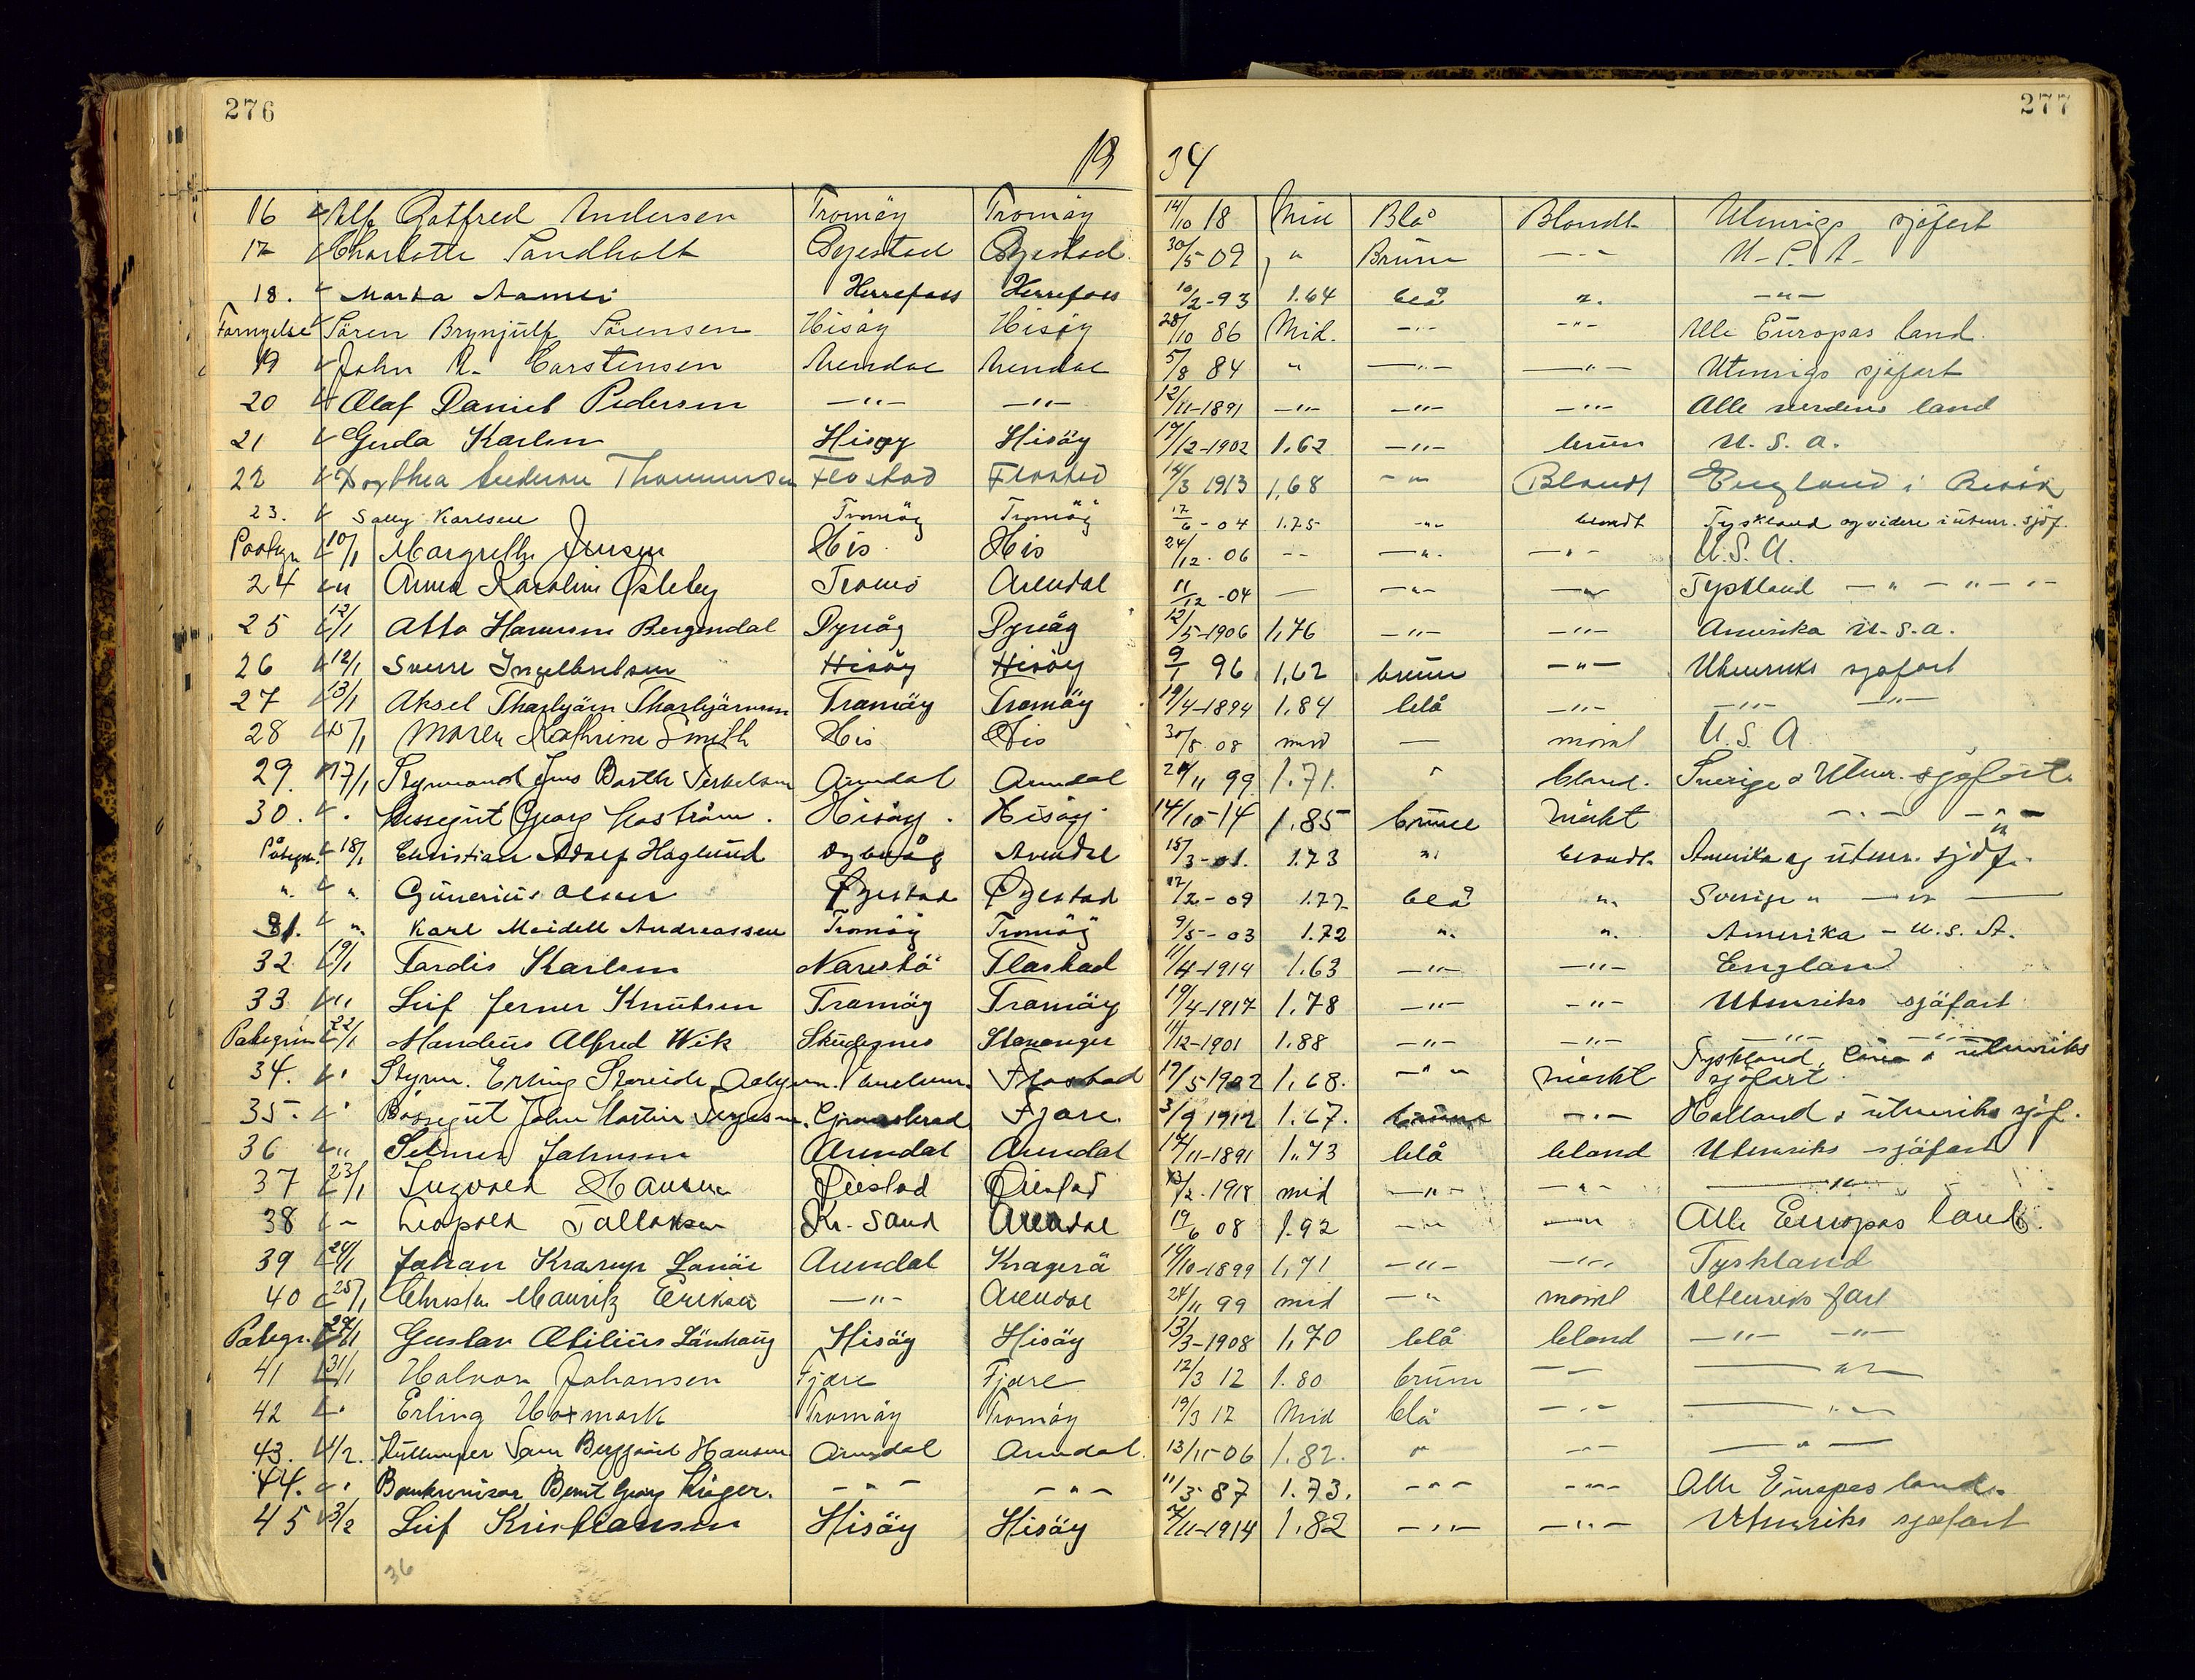 276 277
19 34
16 Alf Gotfred Andersen Tromöy Tromöy 14/10 18 Mid Blå Blondt Utenrigs sjöfart
17 Charlotte Sandholt Øyestad Øyestad 30/5 09 " Brune —"— U.S.A.
18. Marta Herrefoss Herrefoss 10/2-93 1.64 blå ". —"—
Fornyelse Sören Brynjulf Sörensen Hisöy Hisöy 28/10 86 Mid. —"— —"— Alle Europas land.
19 John A. Carstensen Arendal Arendal 5/8 84 " —"— —"— Utenrigs sjöfart
20 Olaf Daniel Pedersen —"— —"— 12/11-1891 —"— —"— —"— Alle verdens land
21 Gerda Karlsen Hisøy Hisöy 17/12-1902 1,62 —"— brun U.S.A.
22 Thommesen Flostad Flosted 14/3 1913 1,68 —"— Blondt England i Besök
23. Sally Karlsen Tromöy Tromöy 12/6-04 1.75 —"— blondt Tyskland og videre i utenr. sjöf.
10/1 Margrethe Jensen His His 24/12.06 -- —"— —"— U.S.A.
24 " Anna Karoline Østeby Tromö Arendal 11/12-04 — —"— —"— Tyskland —"—"—"—
25 12/1 Otto Hansen Bergendal Dyvåg Dyvåg 12/5-1906 1,76 —"— —"— Amerika U.S.A.
26 12/1 Sverre Ingelbretsen Hisöy Hisöy 9/1 96 1,62 brune —"— Utenriks sjöfart
27 13/1 Aksel Thorbjörn Thorbjörnsen Tromöy Tromöy 19/4-1894 1,84 blå —"— —"— —"—
28 15/1 Maren Kathrine Smith His His 30/8.08 mid — mörel U.S.A
29. 17/1 Styrmand Jens Barth Terkelsen Arendal Arendal 24/11 99 1.71. " blond. Sverige o Utenr. sjöfart.
30. " Georg Hisöy. Hisöy. 14/10-14 1,85 brune mörkt —"— —"—
Påtegn. 18/1 Christian Adolf Haglund Dybvåg Arendal 15/3-01. 1.73 " blondt. Amerika og utenr. sjöf.
" " Gunerius Olsen Øyestad Øyestad 12/2-09 1.72 blå " Sverige " —"—
31. " Karl Meidell Andreassen Tromöy Tromöy 9/5-03 1.72 " " Amerika - U.S.A.
32 19/1 Tordis Karlsen Narestö Flostad 11/4-1914 1.63 —"— —"— England
33 " Leif Ferner Knutsen Tromöy Tromöy 19/4-1917 1,78 —"— —"— Utenriks sjöfart
22/1 Mandius Alfred Wik Skudesnes Stavanger 11/12-1901 1.88 —"— —"— —"— —"—
34. " Styrm. Erling Flostad 17/5-1902 1,68. —"— mörkt Tyskland, o utenriks sjöfart
35. " John Martin Fjære. 3/9 1912 1.67. brune —"— Holland o utenriks sjöf.
36 " Selmer Johnsen Arendal Arendal 14/11-1891 1,73 blå blond Utenriks sjöfart
37 23/1 Ingvald Hansen Øiestad Øiestad 13/2.1918 mid —"— —"— —"—
38 " Leopold Tallaksen Kr. Sand Arendal 19/6 08 1.92 —"— —"— Alle Europas land.
39 24/1 Johan Krarup Arendal Kragerö 14/10-1899 1,71 —"— —"— Tyskland
40 25/1 Christen Mauritz Eriksen —"— Arendal 24/11 99 mid —"— mörel Utenriks fart
27/1 Gustav Hisöy Hisöy 13/3-1908 1,70 blå blond —"— —"—
41 31/1 Halvor Johansen Fjære Fjære 12/3 12 1.80 brune —"— —"—
42 " Erling Hoxmark Tromöy Tromöy 19/3 12 Mid blå —"— —"—
43. 1/2. Hansen Arendal Arendal. 13/11-06 1,82. " —"— —"—
44. " Bankrevisor Bernt Georg Kröger. —"— —"— 11/3 87 1.73. —"— —"— Alle Europas land.
45 3/2 Leif Kristiansen Hisöy Hisöy /11-1914 1,82 —"— —"— Utenriks sjöfart
36